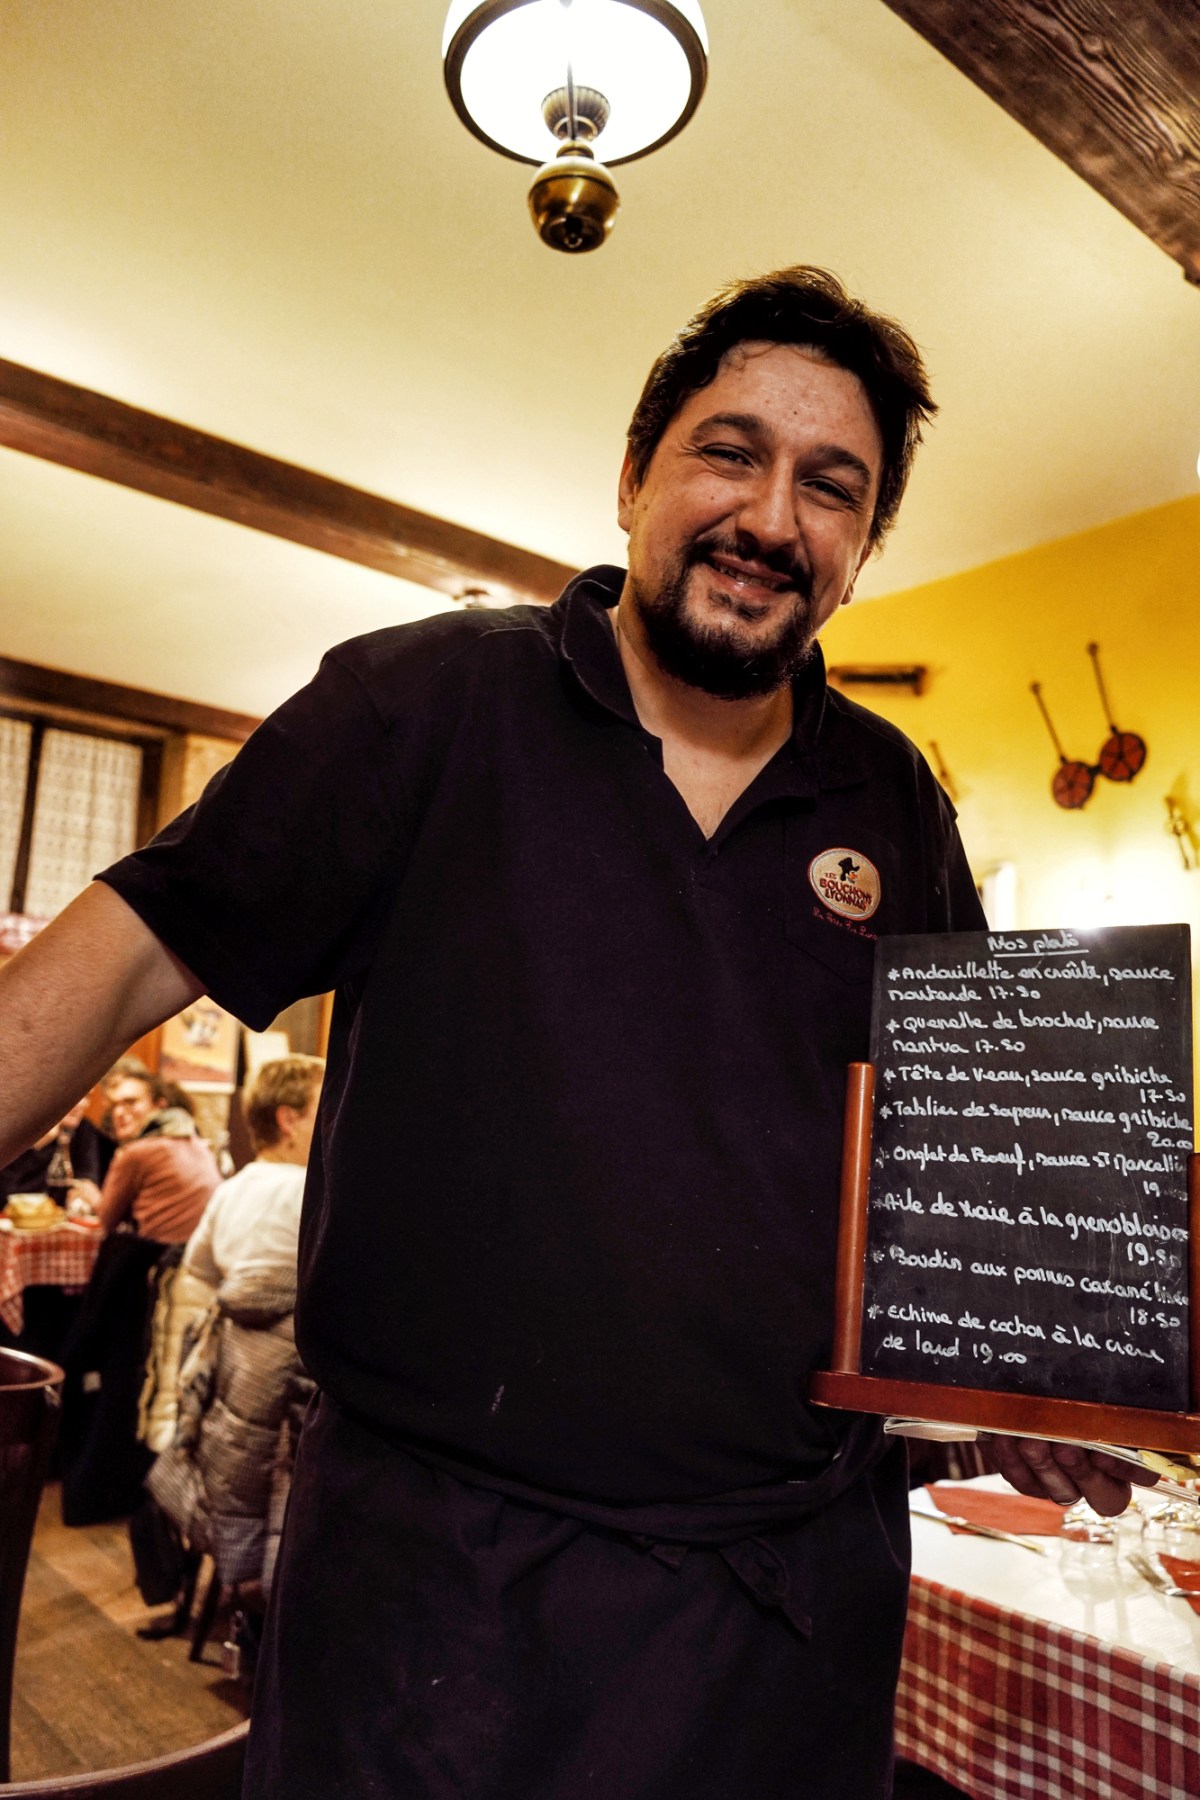 LES
BOUCHONS
LYONNAIS
Nos plats
* Andouillette en croûte, sauce
moutarde 17.50
* Quenelle de brochet, sauce
nantua 17.50
* Tête de Veau, sauce gribiche
17.50
* Tablier de sapeur, sauce gribiche
20.00
* Onglet de Boeuf, sauce St Marcelli
19.
* Aile de raie à la grenobloise
19.50
* Boudin aux pommes caramélisée
18.50
* Echine de cochon à la crème
de lard 19.00